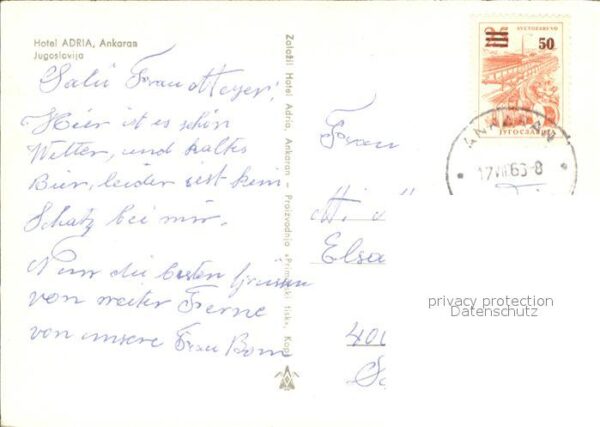 Hotel ADRIA, Ankaran
Jugoslavija
Salü Frau Meyer!
Hier ist es schön
Wetter, und kaltes
Bier, leider ist kein
Schatz bei mir.
Nun die besten Grüssen
von weiter Ferne
von unsere Frau Bom
Založil Hotel Adria, Ankaran – Proizvodnja »Primorski tisk«, Kop
Frau
Elsa
400
50
JUGOSLAVIJA
ANKARAN
17 VII 63-8
privacy protection
Datenschutz